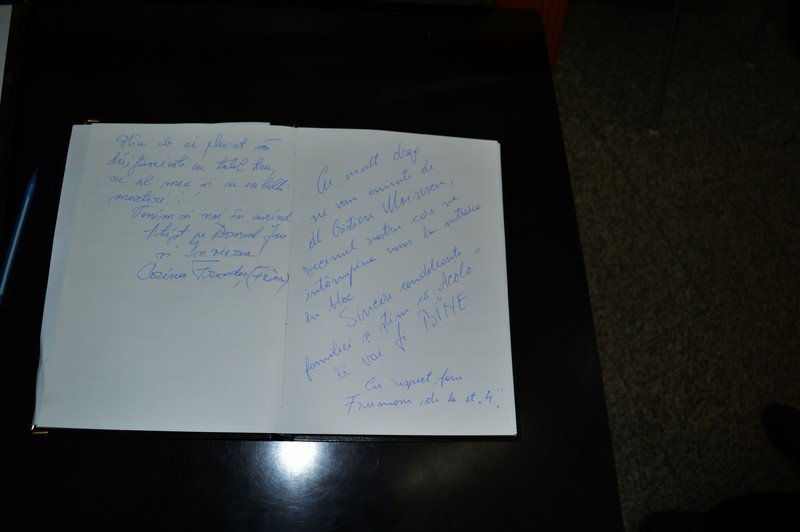 Știu că ai plecat să
cu tatăl tău,
cu al meu și cu ceilalți
Venim și noi în curînd
pe Domnul
și Învierea!
Corina
Cu mult drag
ne vom aminti de
dl Cristian Moisescu,
vecinul nostru care ne
întâmpina voios la intrarea
în bloc
Sincere condoleanțe
familiei și știm că "Acolo"
îi va fi BINE
Cu respect, fam.
Frumosu "de la et. 4".